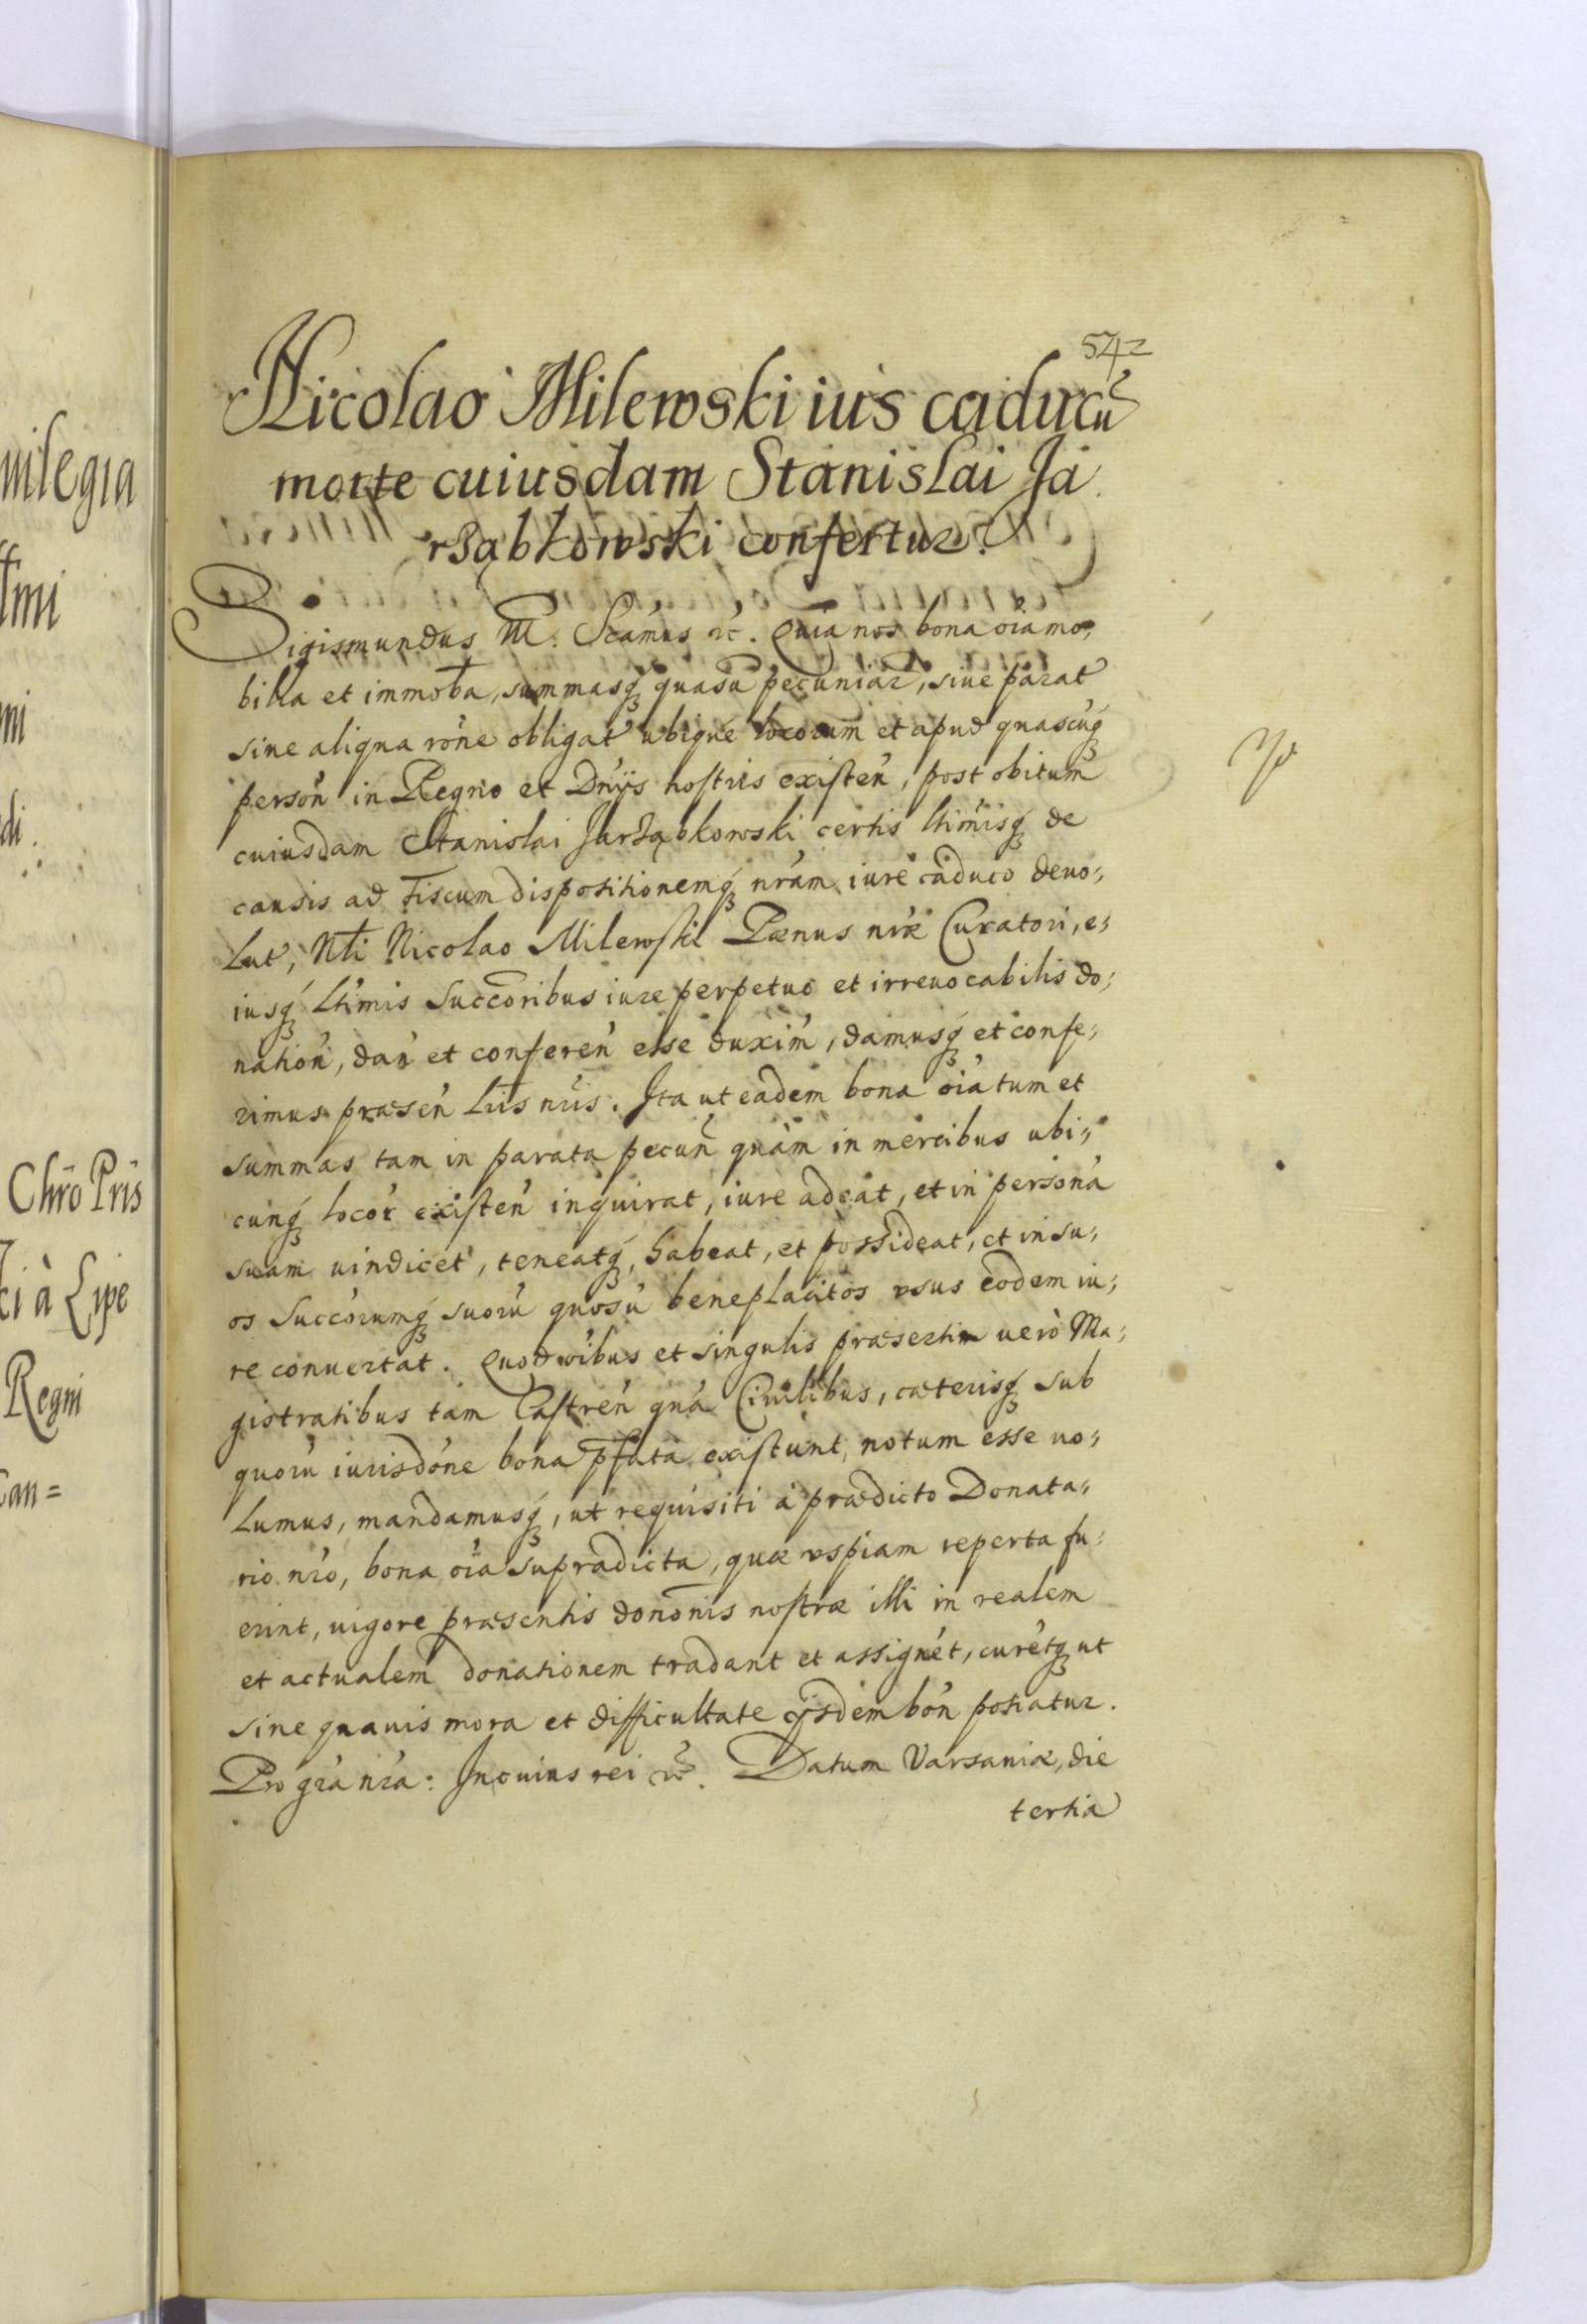 542
Nicolao Milewski ius caducũ
morte cuiusdam Stanislai Ja
rząbkowski confertur.
Sigismundus III. Scámus &c. Quia nos bona oía mo;
bilia et immobͣa, summasq́ꝫ quasú pecuniar, siue parat
siue aliqua róne obligat ubique locorum et apud quascúq́ꝫ
persoń in Regno et Dńijs nostris existeń, post obitum
cuiusdam Stanislai Jarząbkowski certis ltimisq́ꝫ de
causis ad Fiscum dispositionemq́ꝫ nrám iure caduco deuo;
lut, Nbli Nicolao Milewski Pænus nræ Curatori, e;
iusq́ꝫ ltimis Succóribus iure perpetuo et irreuocabilis do;
natioń, dań et confereń esse duxiḿ, damusq́ꝫ et confe;
rimus præseń Lris nris. Ita ut eadem bona oía tum et
summas tam in parata pecuñ quàm in mercibus ubi;
cunq́ꝫ locor existeń inquirat, iure adeat, et in persońa
suam uindicet, teneatq́ꝫ, habeat, et possideat, et in su;
os Succórumq́ꝫ suorú quosú beneplacitos vsus eodem iu;
re conuertat. Quod oíbus et singulis præsertim uerò Ma;
gistratibus tam Castreń quá Ciuilibus, cæterisq́ꝫ sub
quorú iurisdóne bona pfata existunt, notum esse uo;
lumus, mandamusq́ꝫ, ut requisiti à prædicto Donata;
rio nró, bona oía supradicta, quæ vspiam reperta fu;
erint, uigore præsentis donónis nostræ illi in realem
et actualem donationem tradant et assignét, curétq́ꝫ ut
sine quauis mora et difficultate ijsdem boń potiatur.
Pro gra nra: In cuius rei &c. Datum Varsauiæ, die
tertia
uilegia
mi
di.
Chrõ Pris
ki à Lipe
Regni
Can=